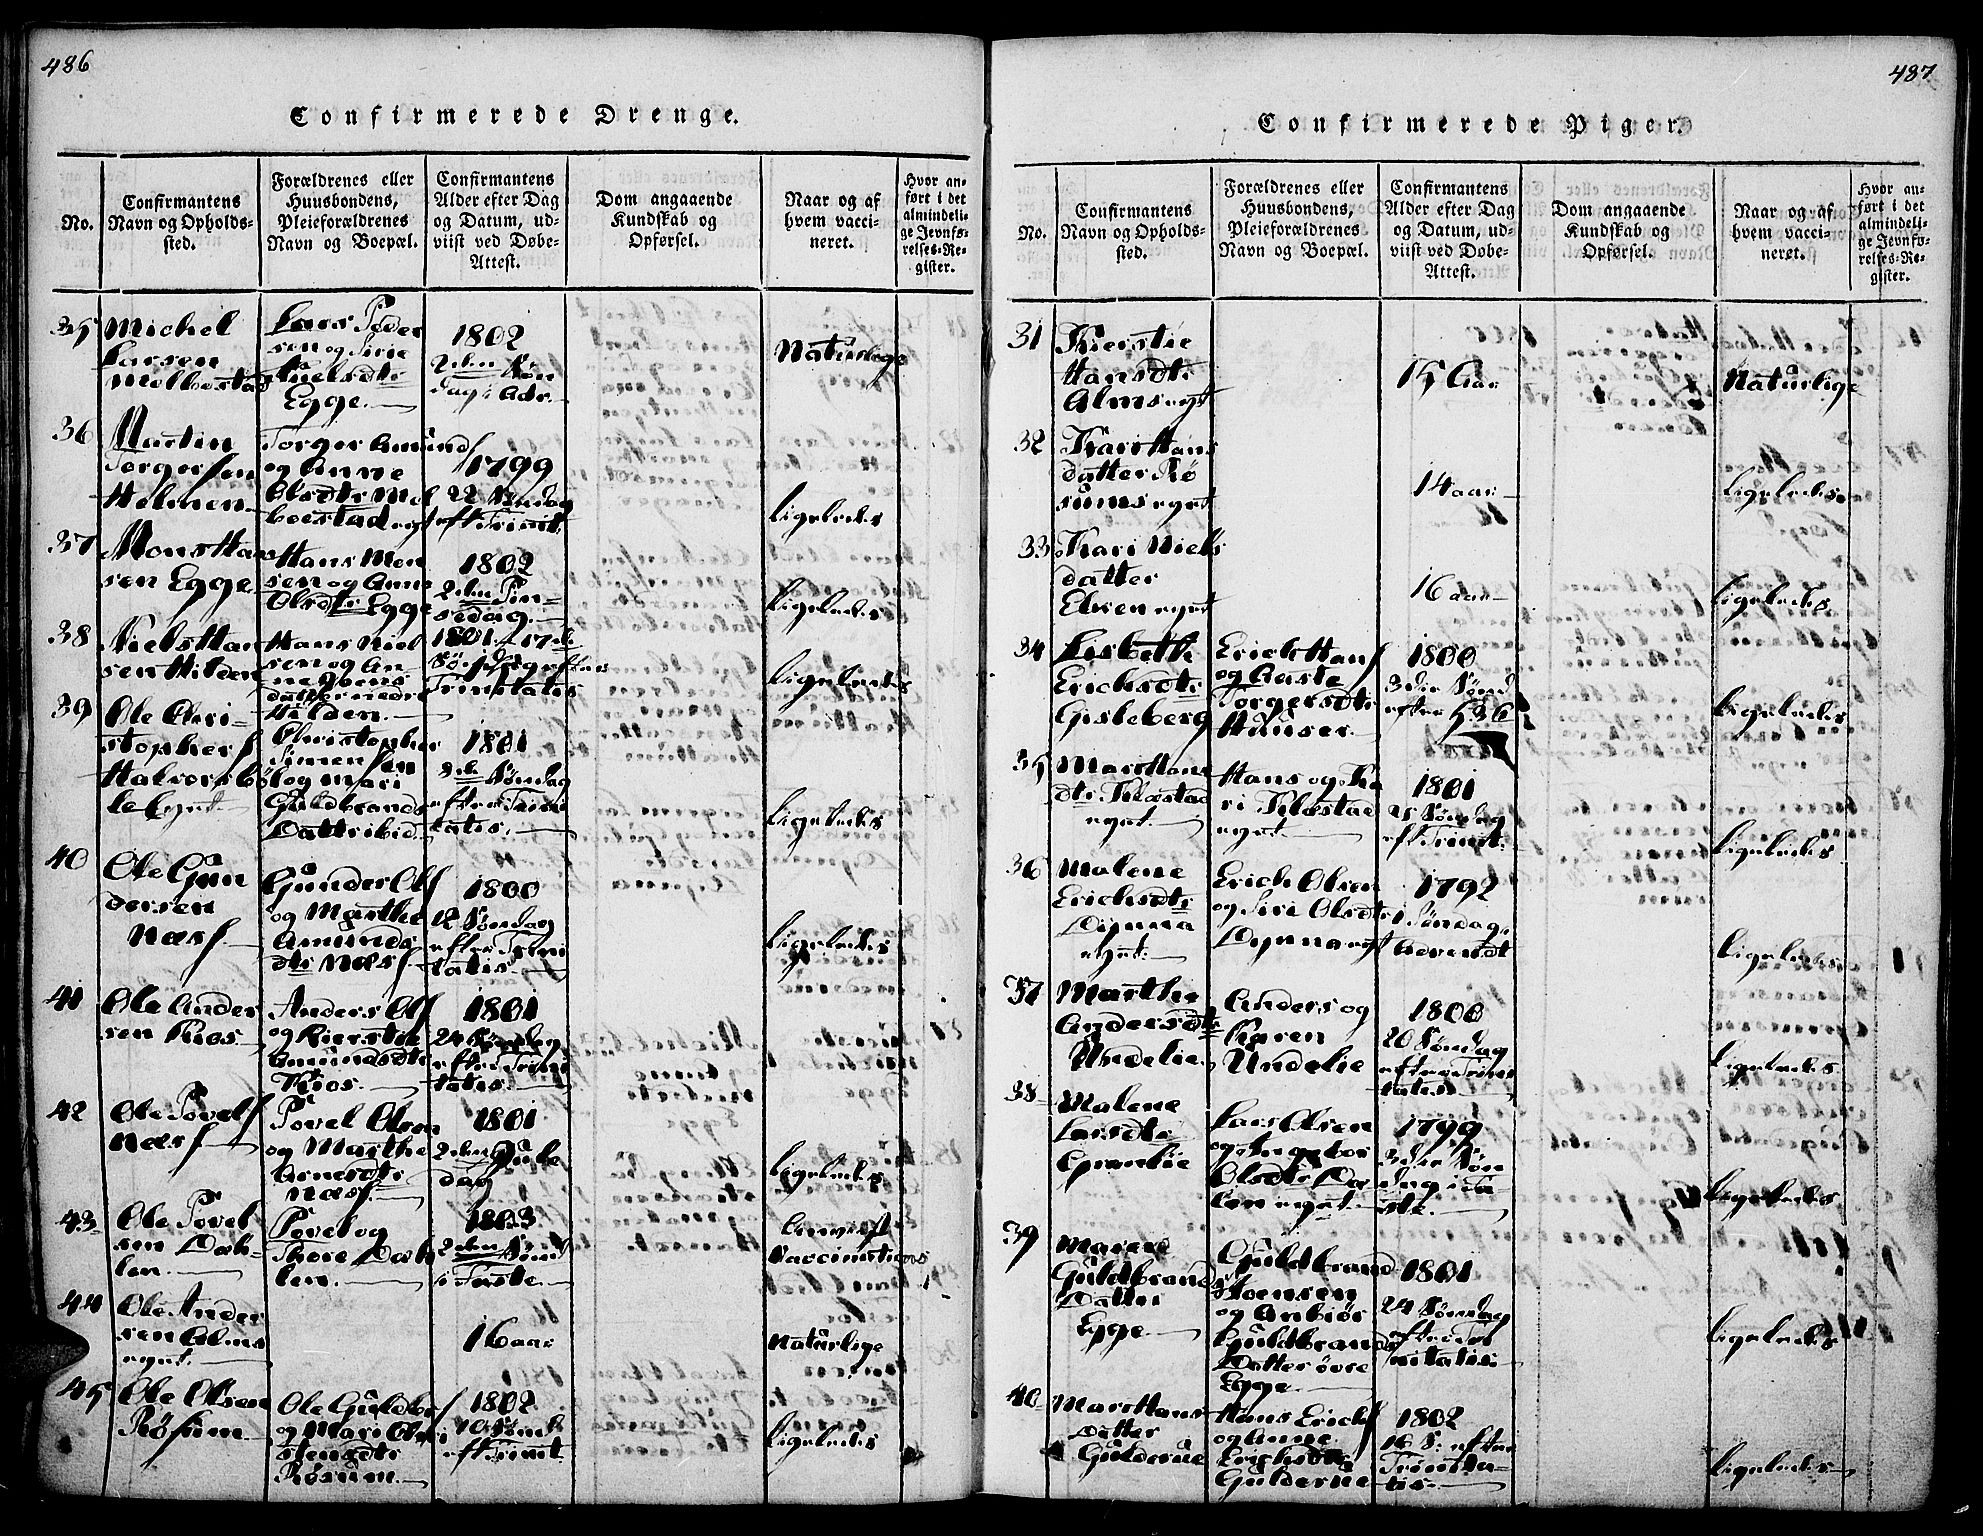 486
Confirmerede Drenge.
No.
Confirmantens
Navn og Opholds-
sted.
Forældrenes eller
Huusbondens,
Pleieforældrenes
Navn og Boepæl.
Confirmantens
Alder efter Dag
og Datum, ud-
viist ved Døbe-
Attest.
Dom angaaende
Kundskab og
Opførsel.
Naar og af
hvem vacci-
neret.
Hvor an-
ført i det
almindeli-
ge Jevnfø-
relses-Re-
gister.
35
Michel
Larsen
Melbostad
Lars Peder
sen og Sirie
Nielsdtr
Egge.
1802
2den Søn
dag i Adv.
Naturlige
36
Martin
Torgersen
Holmen
Torger Amunds
og Anne
Olsdtr Mel
boestad eget
1799
22 Søndag
eft Trinit:
ligeledes
37
Mons Han
sen Egge
Hans Mon
sen og Anne
Olsdtr Egge
1802
2den Pin-
sedag.
ligeledes
38
Niels Han
sen Hilden
Hans Niel
sen og An
ne
datter nedre
Hilden.
1801. 17de
Trinitatis
ligeledes
39
Ole Chri-
stophers
Halvorsbø
le Eynt
Christopher
Simensen
og Mari
Guldbrands
Datter ibid.
1801
Søndag
efter Trini
tatis.
ligeledes
40
Ole Gun
dersen
Næss
Gunder Ols
og Marthe
Amunds
dtr Næss
1800
12 Søndag
efter Trini
tatis.
ligeledes
41
Ole Ander
sen Kios
Anders Ols
og Kierstie
Amundsdtr
Kios.
1801
24 Søndag
efter Trini
tatis.
42
Ole Povels
Næss
Povel Olsen
og Marthe
Arnesdtr
Næss
1801
2den Jule
dag
ligeledes
43
Ole Povel
sen Dah-
len.
Povel og
Thore Dah
len.
1803
2den Sønd
i Faste.
Beviist
Vaccinations
44
Ole Ander
sen Alms
eynt.
16 aar
Naturlige
45
Ole Olsen
Røsum
Ole Guldbr
og Mari Ol
stensdtr
Røsum.
1802
10 Sønd
eft Trinit
ligeledes
487
Confirmerede Piger.
No.
Confirmantens
Navn og Opholds-
sted.
Forældrenes eller
Huusbondens,
Pleieforældrenes
Navn og Boepæl.
Confirmantens
Alder efter Dag
og Datum, ud-
viist ved Døbe-
Attest.
Dom angaaende
Kundskab og
Opførsel.
Naar og af
hvem vacci-
neret.
Hvor an-
ført i det
almindeli-
ge Jevnfø-
relses-Re-
gister.
31
Kierstie
Hansdtr
Alms eyt
15 Aar
Naturlige
32
Kari Hans
datter Rø
sums eynt
14 aar
ligeledes
33
Kari Niels
datter
Elken eynt
16 aar
ligeledes
34
Lisbethe
Erichsdtr
Gisleberg
Erich Hans
og Aaste
Torgersdtr
Hauser
1800
3die Sønd
efter
ligeledes
35
Mari Hans
dtr Kløstad
eynt.
Hans og Ka
ri Kløstad
eynt.
1801
21 Søndag
eft Trinit:
ligeledes
36
Malene
Erichsdtr
Dynna
eynt:
Erich Olsen
og Siri Olsdtr
Dynna eyt
1792
1 Søndag
Advendt
ligeledes
37
Marthe
Andersdtr
Undelie
Anders og
Karen
Undelie
1800
20 Søndag
efter Trini
tatis
ligeledes
38
Malene
Larsdtr
Granlie
Lars Olsen
og Ingebor
Olsdtr Da
len eynt
1799
3die Søn
dag i Fa-
ste.
ligeledes
39
Maren
Guldbrands
Datter
Egge
Guldbrand
Joensen
og Anbiør
Guldbrands
Datter øvre
Egge
1801
24 Søndag
efter Tri
nitatis:
ligeledes
40
Mari Hans
Datter
Gulderue
Hans Erichs
og Anne
Erichsdtr
Gulderue
1802
16 S: efter
Trinita-
tis
ligeledes